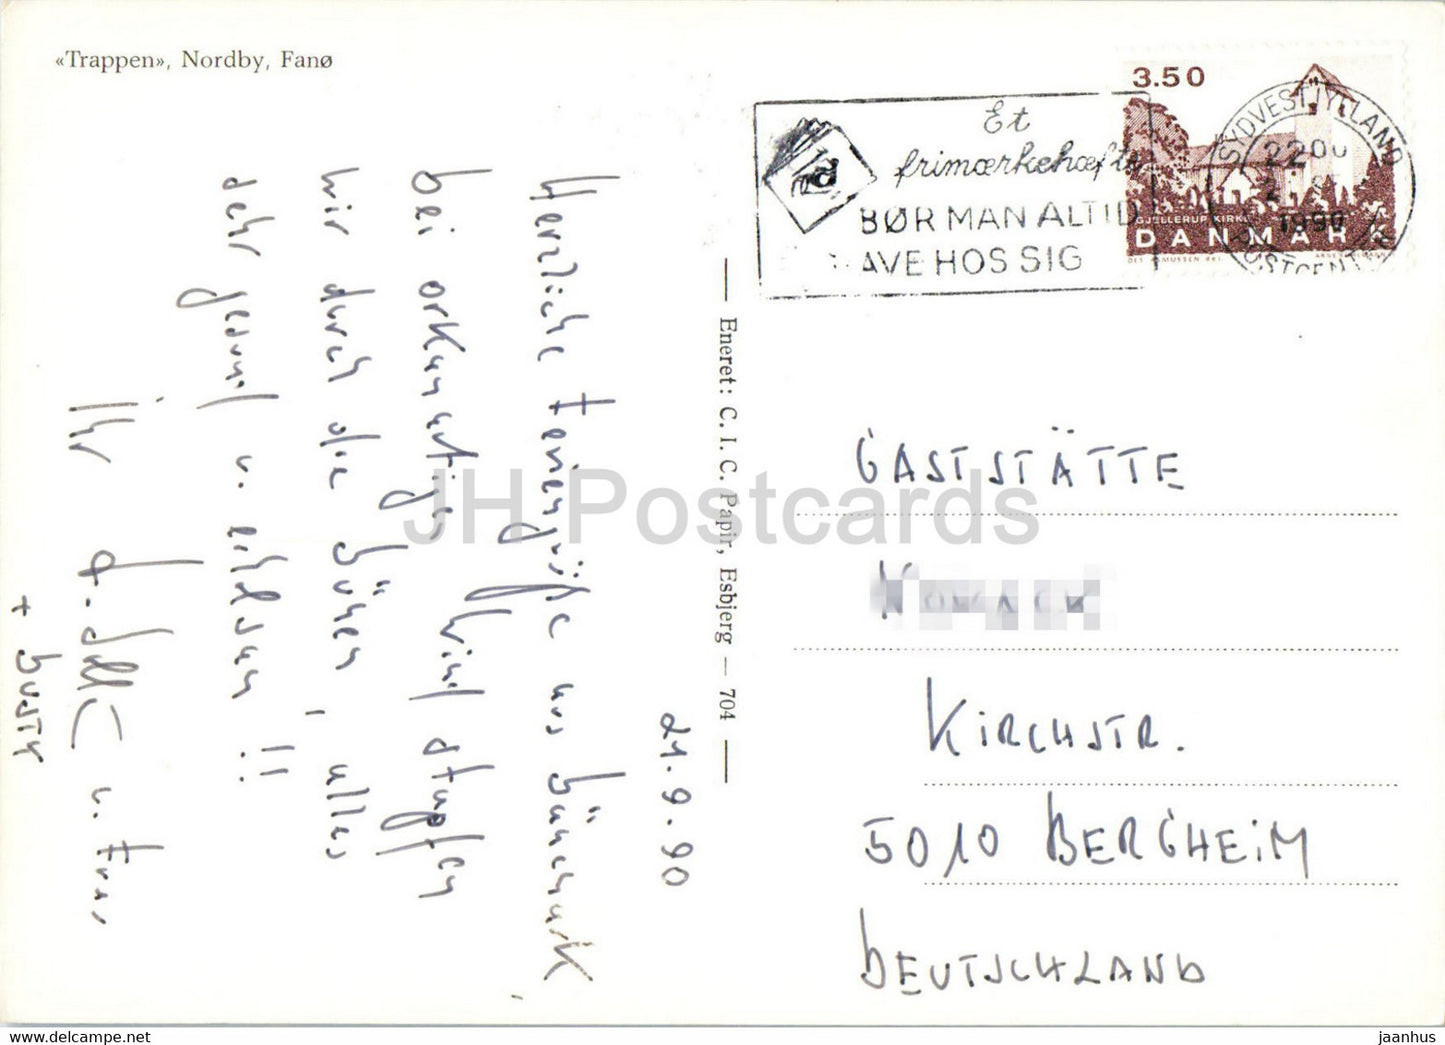 «Trappen», Nordby, Fanø
3.50
GJELLERUP KIRKE
DANMARK
SYDVESTJYLLAND
POSTCENTER
2200
1990
Et
frimærkehæfte
BØR MAN ALTID
AVE HOS SIG
Eneret: C. I. C. Papir, Esbjerg — 704
21.9.90
Herzliche Feriengrüße aus Dänemark,
bei orkanartigen Wind stapfen
wir durch die Dünen, alles
sehr gesund u. erholsam !!
Ihr u. Frau
+ BUSTY
GASTSTÄTTE
KIRCHSTR.
5010 BERGHEIM
DEUTSCHLAND
JH Postcards
www.hippostcard.com
jaanhus